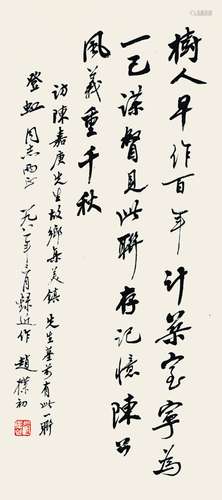 樹人早作百年計築室寧為
一己謀見此聯存記憶陳公
風義重千秋
訪陳嘉庚先生故鄉集美鎮先生前有此一聯
登虹同志两正一九八一年三月録近作趙樸初